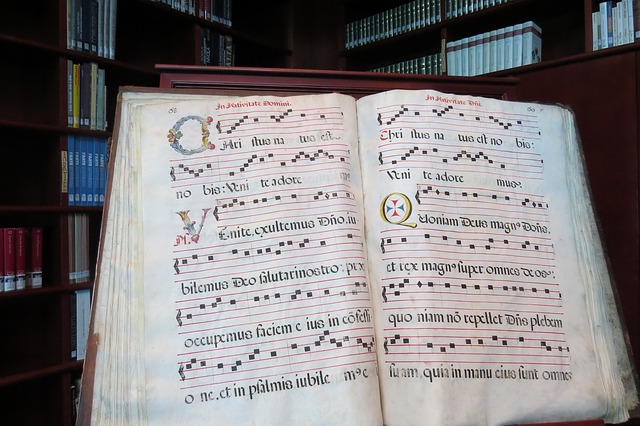 In Nativitate Domini.
Chri stus na tus est
no bis: Veni te adore
Venite, exultemus Dño, iu
bilemus Deo salutari nostro: præ
occupemus faciem e ius in cõfessi
o ne, et in psalmis iubile m⁹ e
In Nativitate Dni.
Chri stus na tus est no bis:
Veni te adore mus.
Quoniam Deus magn⁹ Dõns,
et rex magn⁹ super omnes deos:
quo niam nõ repellet Dñs plebem
suam, quia in manu eius sunt omnes